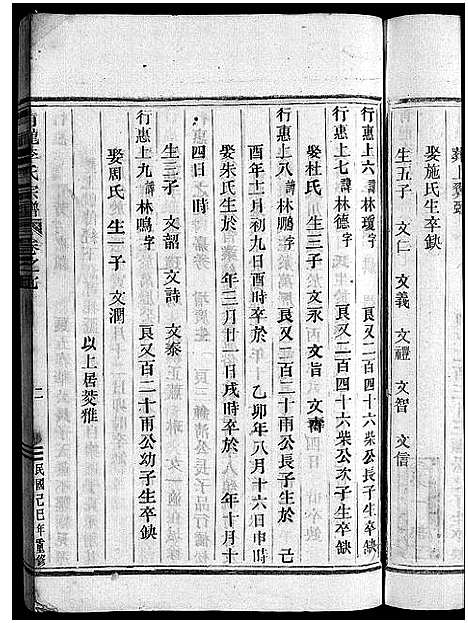 娶施氏生卒缺
生五子 文仁 文義 文禮 文智 文信
行惠上六諱林瓊字 良又二百四十六柴公長子生卒缺
行惠上七諱林德字 良又二百四十六柴公次子生卒缺
娶杜氏 生三子 文永 文旨 文壽
行惠上八諱林鵬字 良又二百二十兩公長子生於 己
酉年十二月初九日酉時卒於 乙卯年八月十六日申時
娶朱氏生於 年三月廿一日戌時卒於 年十月十
四日 時
生三子 文韶 文詩 文泰
行惠上九諱林鳴字 良又二百二十兩公幼子生卒缺
娶周氏 生一子 文潤
以上居菱雅
李氏宗譜 卷之
二
民國己巳年重修